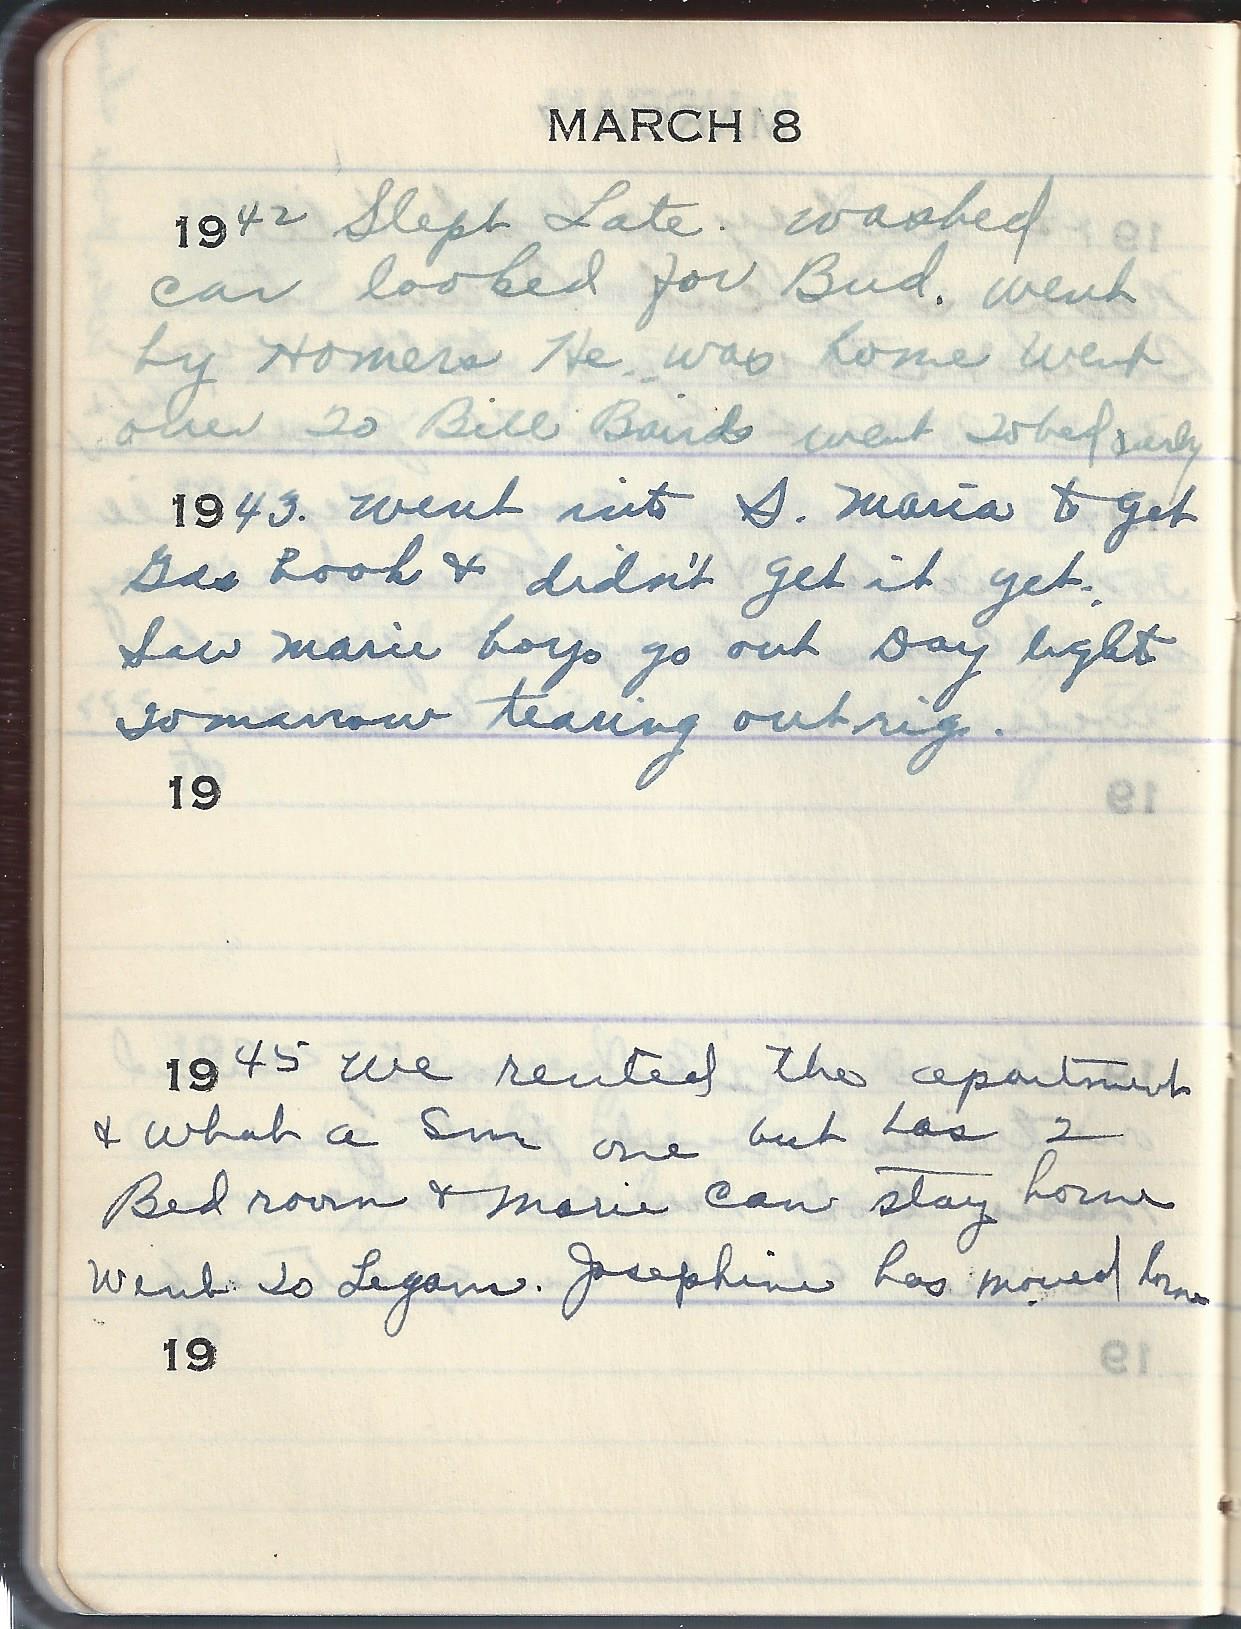 MARCH 8
1942 Slept Late. washed
car looked for Bud. went
by Homers He was home went
over to Bill Bairds went to bed early
1943. Went into S. Maria to get
Gas book & didn't get it yet.
Saw marie boys go out Day light
tomarrow tearing out rig.
19
1945 We rented the apartment
& what a Sm one but has 2
Bed room & Marie can stay home
Went to Legom. Josephine has moved home
19